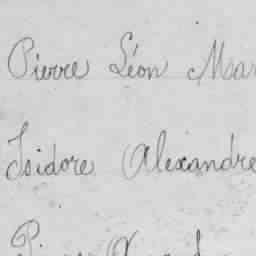 Pierre Léon Mar
Isidore Alexandre